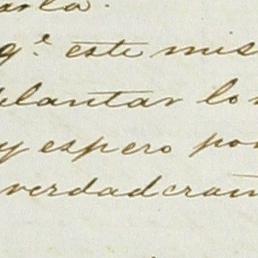 q.e este mis
elantar lo
y espero por
verdadera